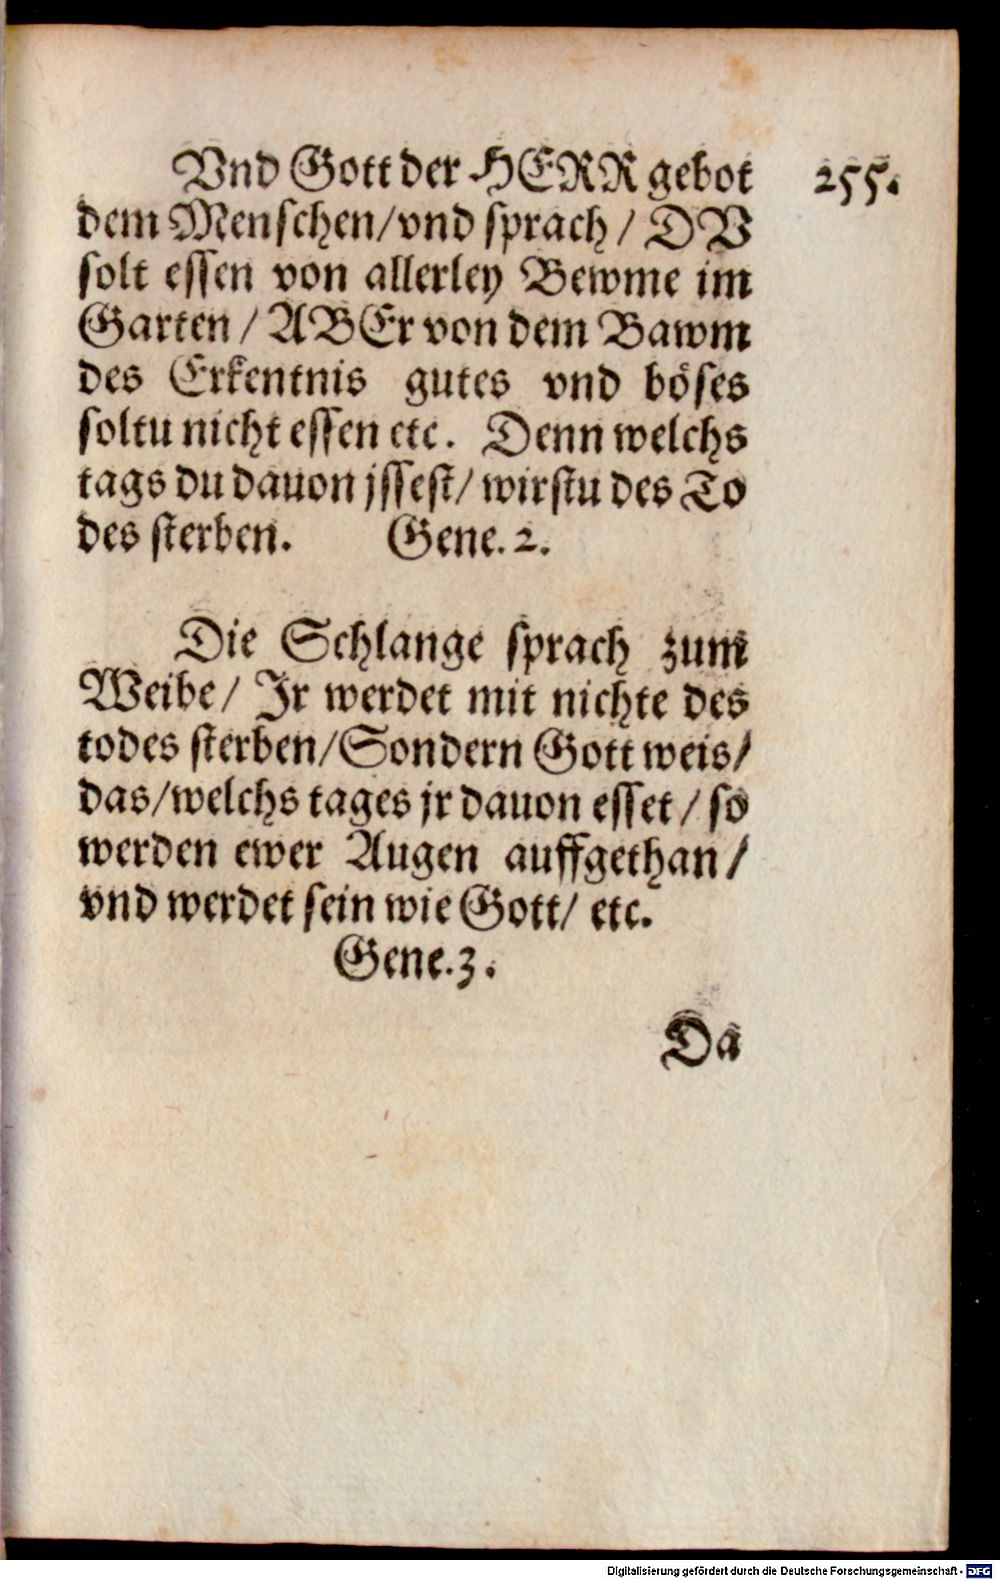 Vnd Gott der HERR gebot
255.
dem Menschen/vnd sprach / DV
solt essen von allerley Bewme im
Garten / ABEr von dem Bawm
des Erkentnis gutes vnd böses
soltu nicht essen etc. Denn welchs
tags du dauon jssest/ wirstu des To
des sterben. Gene. 2.
Die Schlange sprach zum
Weibe/ Jr werdet mit nichte des
todes sterben/Sondern Gott weis/
das/welchs tages jr dauon esset / so
werden ewer Augen auffgethan/
vnd werdet sein wie Gott/ etc.
Gene.3.
Da
Digitalisierung gefördert durch die Deutsche Forschungsgemeinschaft - DFG